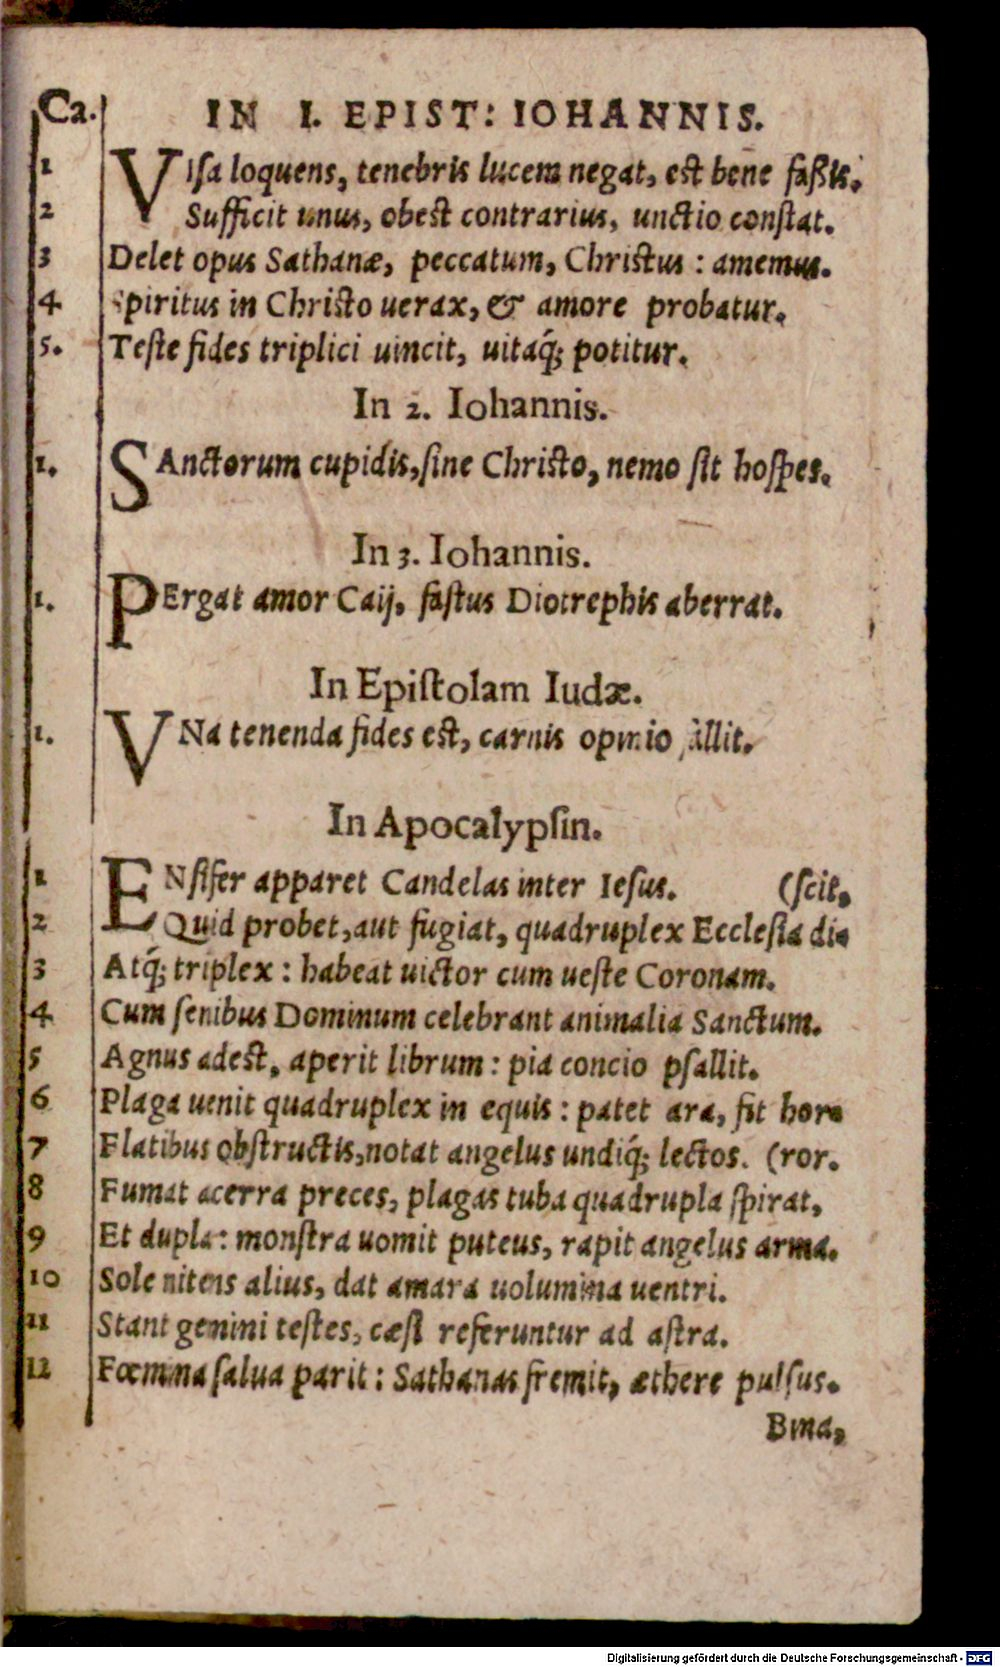 Ca. IN I. EPIST: IOHANNIS.
1 VIsa loquens, tenebris lucem negat, est bene faßis.
2 Sufficit unus, obest contrarius, unctio constat.
3 Delet opus Sathanæ, peccatum, Christus : amemus.
4 Spiritus in Christo uerax, & amore probatur.
5. Teste fides triplici uincit, uitaq́; potitur.
In 2. Iohannis.
1. SAnctorum cupidis, sine Christo, nemo sit hospes.
In 3. Iohannis.
1. PErgat amor Caij, fastus Diotrephis aberrat.
In Epistolam Iudæ.
1. VNa tenenda fides est, carnis opinio fallit.
In Apocalypsin.
1 ENsifer apparet Candelas inter Iesus. (scit,
2 Quid probet, aut fugiat, quadruplex Ecclesia di⸗
3 Atq́; triplex : habeat uictor cum ueste Coronam.
4 Cum senibus Dominum celebrant animalia Sanctum.
5 Agnus adest, aperit librum : pia concio psallit.
6 Plaga uenit quadruplex in equis : patet ara, fit hor⸗
7 Flatibus obstructis, notat angelus undiq́; lectos. (ror.
8 Fumat acerra preces, plagas tuba quadrupla spirat,
9 Et dupla: monstra uomit puteus, rapit angelus arma.
10 Sole nitens alius, dat amara uolumina uentri.
11 Stant gemini testes, cæsi referuntur ad astra.
12 Fœmina salua parit : Sathanas fremit, æthere pulsus.
Bina,
Digitalisierung gefördert durch die Deutsche Forschungsgemeinschaft - DFG